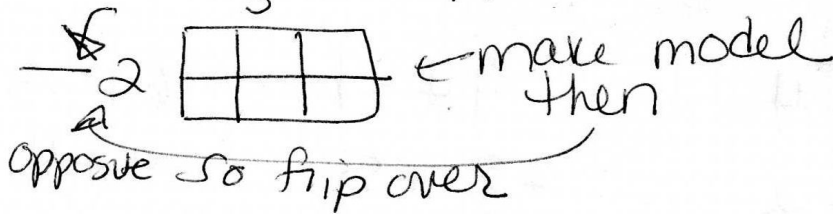 -2 ← make model
then
opposite so flip over